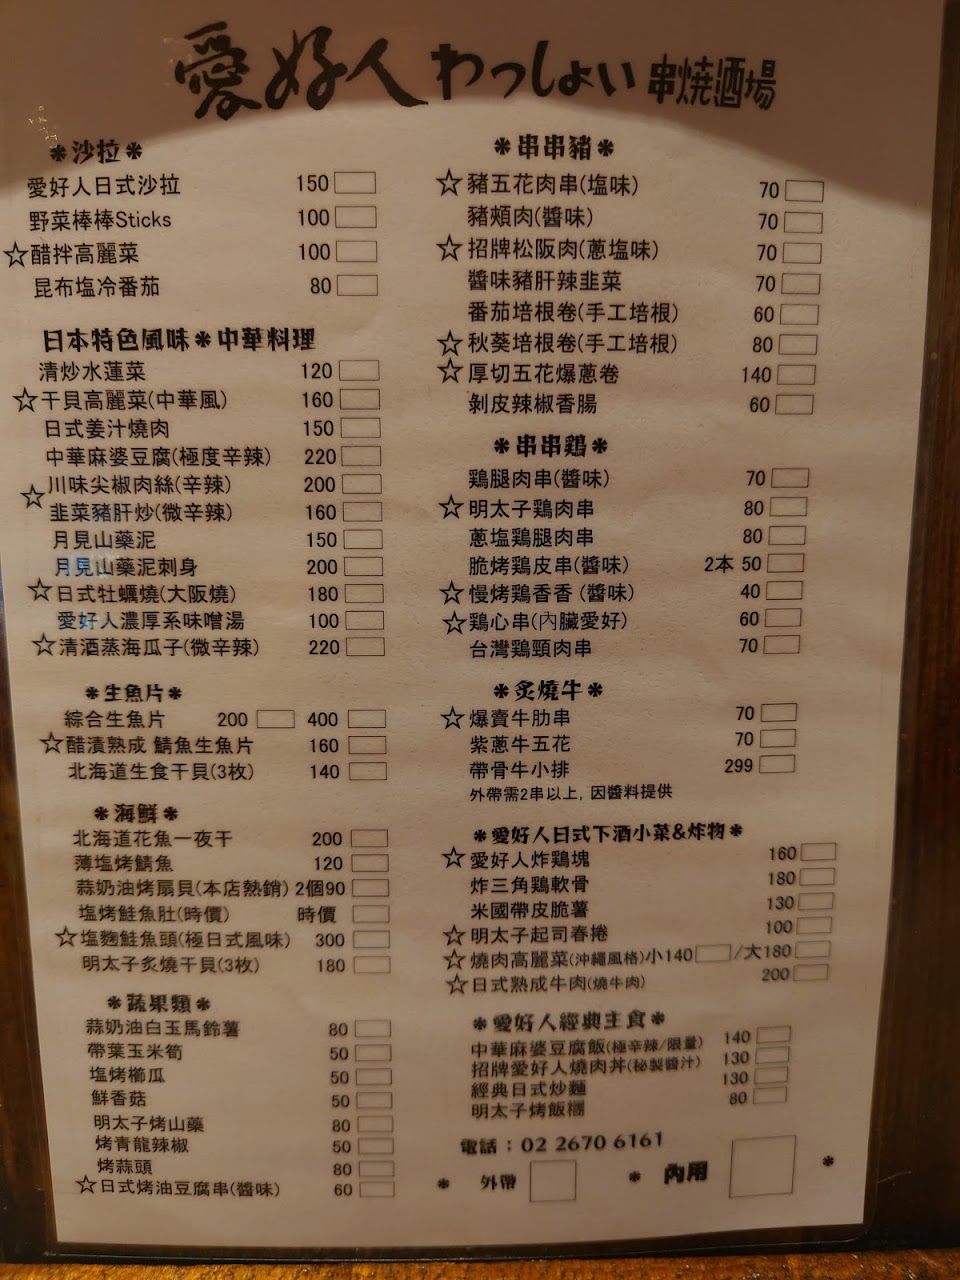 愛好人わっしょい 串燒酒場
*沙拉*
愛好人日式沙拉 150
野菜棒棒Sticks 100
☆醋拌高麗菜 100
昆布塩冷番茄 80
日本特色風味*中華料理
清炒水蓮菜 120
☆干貝高麗菜(中華風) 160
日式姜汁燒肉 150
中華麻婆豆腐(極度辛辣) 220
☆川味尖椒肉絲(辛辣) 200
韭菜豬肝炒(微辛辣) 160
月見山藥泥 150
月見山藥泥刺身 200
☆日式牡蠣燒(大阪燒) 180
愛好人濃厚系味噌湯 100
☆清酒蒸海瓜子(微辛辣) 220
*生魚片*
綜合生魚片 200 400
☆醋漬熟成 鯖魚生魚片 160
北海道生食干貝(3枚) 140
*海鮮*
北海道花魚一夜干 200
薄塩烤鯖魚 120
蒜奶油烤扇貝(本店熱銷) 2個90
塩烤鮭魚肚(時價) 時價
☆塩麴鮭魚頭(極日式風味) 300
明太子炙燒干貝(3枚) 180
*蔬果類*
蒜奶油白玉馬鈴薯 80
帶葉玉米筍 50
塩烤櫛瓜 50
鮮香菇 50
明太子烤山藥 80
烤青龍辣椒 50
烤蒜頭 80
☆日式烤油豆腐串(醬味) 60
*串串豬*
☆豬五花肉串(塩味) 70
豬頰肉(醬味) 70
☆招牌松阪肉(蔥塩味) 70
醬味豬肝辣韭菜 70
番茄培根卷(手工培根) 60
☆秋葵培根卷(手工培根) 80
☆厚切五花爆蔥卷 140
剝皮辣椒香腸 60
*串串鶏*
鶏腿肉串(醬味) 70
☆明太子鶏肉串 80
蔥塩鶏腿肉串 80
脆烤鶏皮串(醬味) 2本 50
☆慢烤鶏香香 (醬味) 40
☆鶏心串(內臟愛好) 60
台灣鶏頸肉串 70
*炙燒牛*
☆爆賣牛肋串 70
紫蔥牛五花 70
帶骨牛小排 299
外帶需2串以上, 因醬料提供
*愛好人日式下酒小菜&炸物*
☆愛好人炸鶏塊 160
炸三角鶏軟骨 180
米國帶皮脆薯 130
☆明太子起司春捲 100
☆燒肉高麗菜(沖繩風格)小140 /大180
☆日式熟成牛肉(燒牛肉) 200
*愛好人經典主食*
中華麻婆豆腐飯(極辛辣/限量) 140
招牌愛好人燒肉丼(秘製醬汁) 130
經典日式炒麵 130
明太子烤飯糰 80
電話：02 2670 6161
* 外帶 * 內用 *